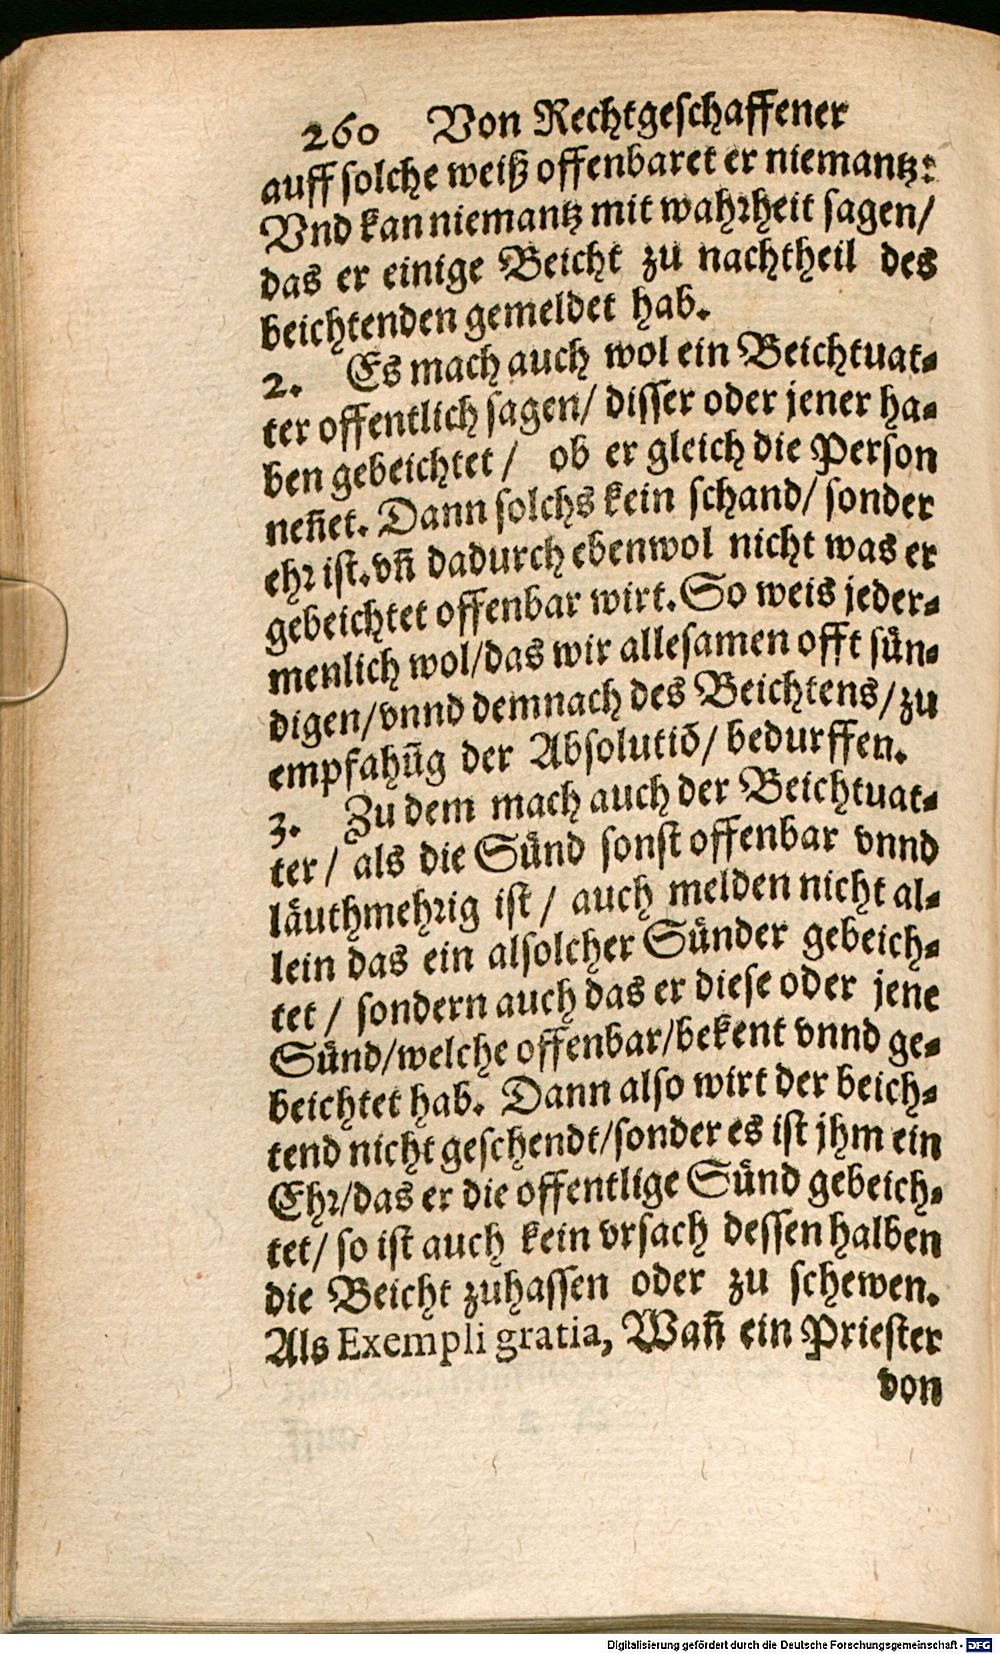 260 Von Rechtgeschaffener
auff solche weiß offenbaret er niemantz:
Vnd kan niemantz mit wahrheit sagen/
das er einige Beicht zu nachtheil des
beichtenden gemeldet hab.
2. Es mach auch wol ein Beichtuat-
ter offentlich sagen/ disser oder jener ha-
ben gebeichtet / ob er gleich die Person
neñet. Dann solchs kein schand/ sonder
ehr ist. vñ dadurch ebenwol nicht was er
gebeichtet offenbar wirt. So weis jeder-
menlich wol/das wir allesamen offt sün-
digen/vnnd demnach des Beichtens/zu
empfahũg der Absolutiō/ bedurffen.
3. Zu dem mach auch der Beichtuat-
ter / als die Sünd sonst offenbar vnnd
läuthmehrig ist / auch melden nicht al-
lein das ein alsolcher Sünder gebeich-
tet / sondern auch das er diese oder jene
Sünd/welche offenbar/bekent vnnd ge-
beichtet hab. Dann also wirt der beich-
tend nicht geschendt/sonder es ist jhm ein
Ehr/das er die offentlige Sünd gebeich-
tet/ so ist auch kein vrsach dessen halben
die Beicht zuhassen oder zu schewen.
Als Exempli gratia, Wañ ein Priester
von
Digitalisierung gefördert durch die Deutsche Forschungsgemeinschaft - DFG